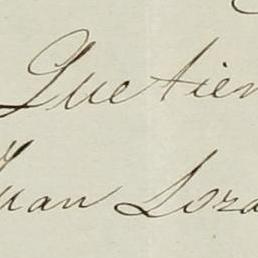 Que tien
Juan Loza